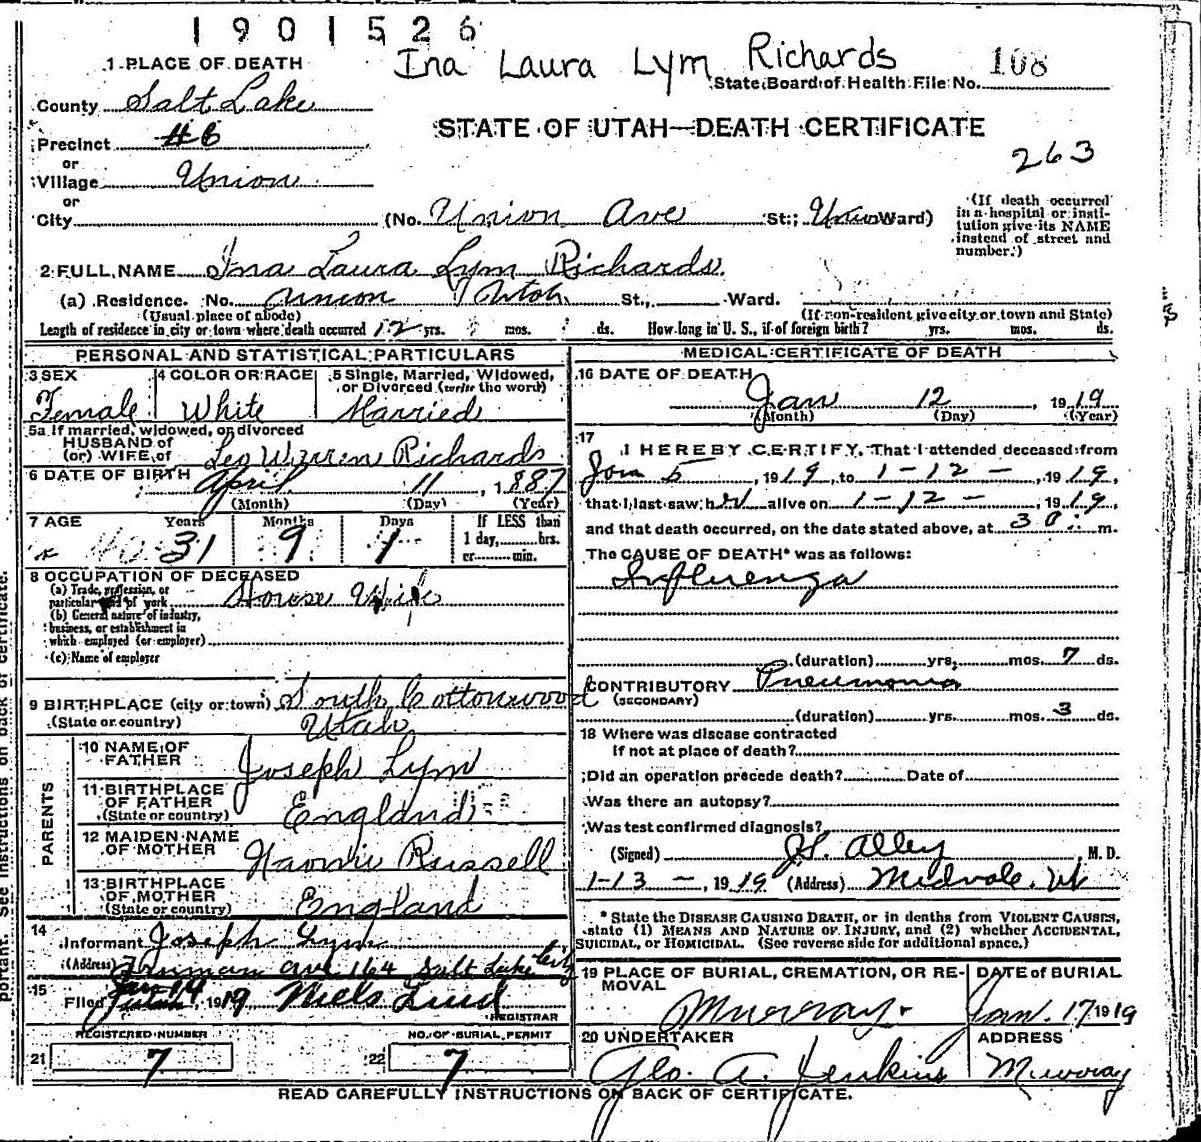 1901526
Ina Laura Lym Richards 108
State Board of Health File No.
1 PLACE OF DEATH
County Salt Lake
STATE OF UTAH—DEATH CERTIFICATE
Precinct #6
263
or
Village Union
or
City (No. Union Ave St.; Ward)
(If death occurred
in a hospital or insti-
tution give its NAME
instead of street and
number.)
2 FULL NAME Ina Laura Lym Richards.
(a) Residence. No. Union Utah St., Ward.
(Usual place of abode) (If non-resident give city or town and State)
Length of residence in city or town where death occurred 12 yrs. mos. ds. How long in U. S., if of foreign birth? yrs. mos. ds.
PERSONAL AND STATISTICAL PARTICULARS
3 SEX
Female
4 COLOR OR RACE
White
5 Single, Married, Widowed,
or Divorced (write the word)
Married
5a If married, widowed, or divorced
HUSBAND of
(or) WIFE of Leo Warren Richards
6 DATE OF BIRTH April 11, 1887
(Month) (Day) (Year)
7 AGE Years Months Days If LESS than
31 9 1 1 day, hrs.
or min.
8 OCCUPATION OF DECEASED
(a) Trade, profession, or
particular kind of work House Wife
(b) General nature of industry,
business, or establishment in
which employed (or employer)
(c) Name of employer
9 BIRTHPLACE (city or town) South Cottonwood
(State or country) Utah
PARENTS
10 NAME OF
FATHER Joseph Lym
11 BIRTHPLACE
OF FATHER
(State or country) England
12 MAIDEN NAME
OF MOTHER Naomie Russell
13 BIRTHPLACE
OF MOTHER
(State or country) England
14
Informant Joseph Lym
(Address) Truman ave 164 Salt Lake City
15
Filed Jan 14, 1919 Niels Lind
REGISTRAR
REGISTERED NUMBER
21 7
NO. OF BURIAL PERMIT
22 7
MEDICAL CERTIFICATE OF DEATH
16 DATE OF DEATH
Jan 12, 1919
(Month) (Day) (Year)
17
I HEREBY CERTIFY, That I attended deceased from
Jan 5, 1919, to 1-12-, 1919,
that I last saw her alive on 1-12-, 1919,
and that death occurred, on the date stated above, at 3 m.
The CAUSE OF DEATH* was as follows:
Influenza
(duration) yrs. mos. 7 ds.
CONTRIBUTORY Pneumonia
(SECONDARY)
(duration) yrs. mos. 3 ds.
18 Where was disease contracted
if not at place of death?
Did an operation precede death? Date of
Was there an autopsy?
Was test confirmed diagnosis?
(Signed) Alley M. D.
1-13-, 1919 (Address) Midvale, Ut
* State the DISEASE CAUSING DEATH, or in deaths from VIOLENT CAUSES,
state (1) MEANS AND NATURE OF INJURY, and (2) whether ACCIDENTAL,
SUICIDAL, or HOMICIDAL. (See reverse side for additional space.)
19 PLACE OF BURIAL, CREMATION, OR RE-
MOVAL
Murray.
DATE of BURIAL
Jan. 17 1919
20 UNDERTAKER
Geo. A. Jenkins
ADDRESS
Murray
READ CAREFULLY INSTRUCTIONS ON BACK OF CERTIFICATE.
portant. See instructions on back of certificate.